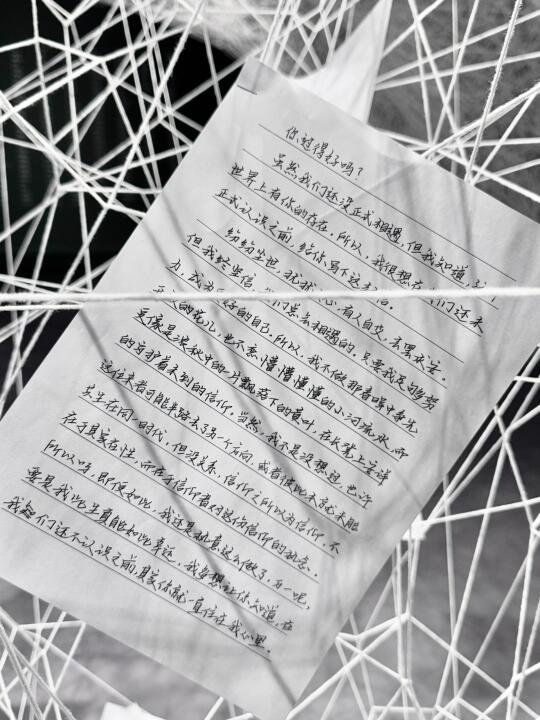 你过得好吗？
虽然我们还没正式相遇，但我知道，这个
世界上有你的存在，所以，我很想在我们还未
正式认识之前，给你写下这
纷纷尘世，扰扰 ，有人自
但我终坚信， 们是会相遇的，只要我足够努
力，成为 好的自己。所以，我不做那音啡中
的花儿，也不去懵懵懂懂的小河流水，而
更像是深秋中的一片飘落下的黄叶，在长凳上安详
的守护着未到的信仰，当然，我不是没想过，也许
这位来者可能半路去了另一个方向，或者彼此未能
共生在同一时代，但没关系，信仰之所以为信仰，不
在于具实在性，而在于信仰者对这份信仰的执意。
所以呀，即便如此，我还是执意这么做了，万一呢，
要是我此生真能如此幸运，我多想让你知道，在
我们还不认识之前，其实你就一直住在我心里。